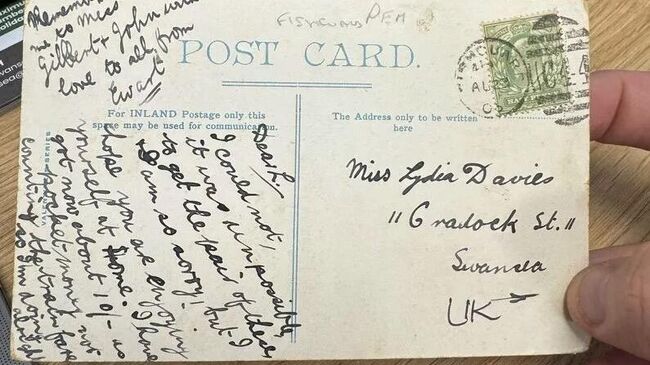 Remember
me to Miss
Gilbert + John with
love to all from
Ewart
FISHGUARD PEM
POST CARD.
For INLAND Postage only this
space may be used for communication.
The Address only to be written
here
SERIES
Dear L.
I could not,
it was impossible
to get the pair of these,
I am so sorry, but I
hope you are enjoying
yourself at home. I have
got now about 10/- as
pocket-money not
counting the train fare
so I'm doing
alright
Miss Lydia Davies
11 Cradock St.,
Swansea
UK